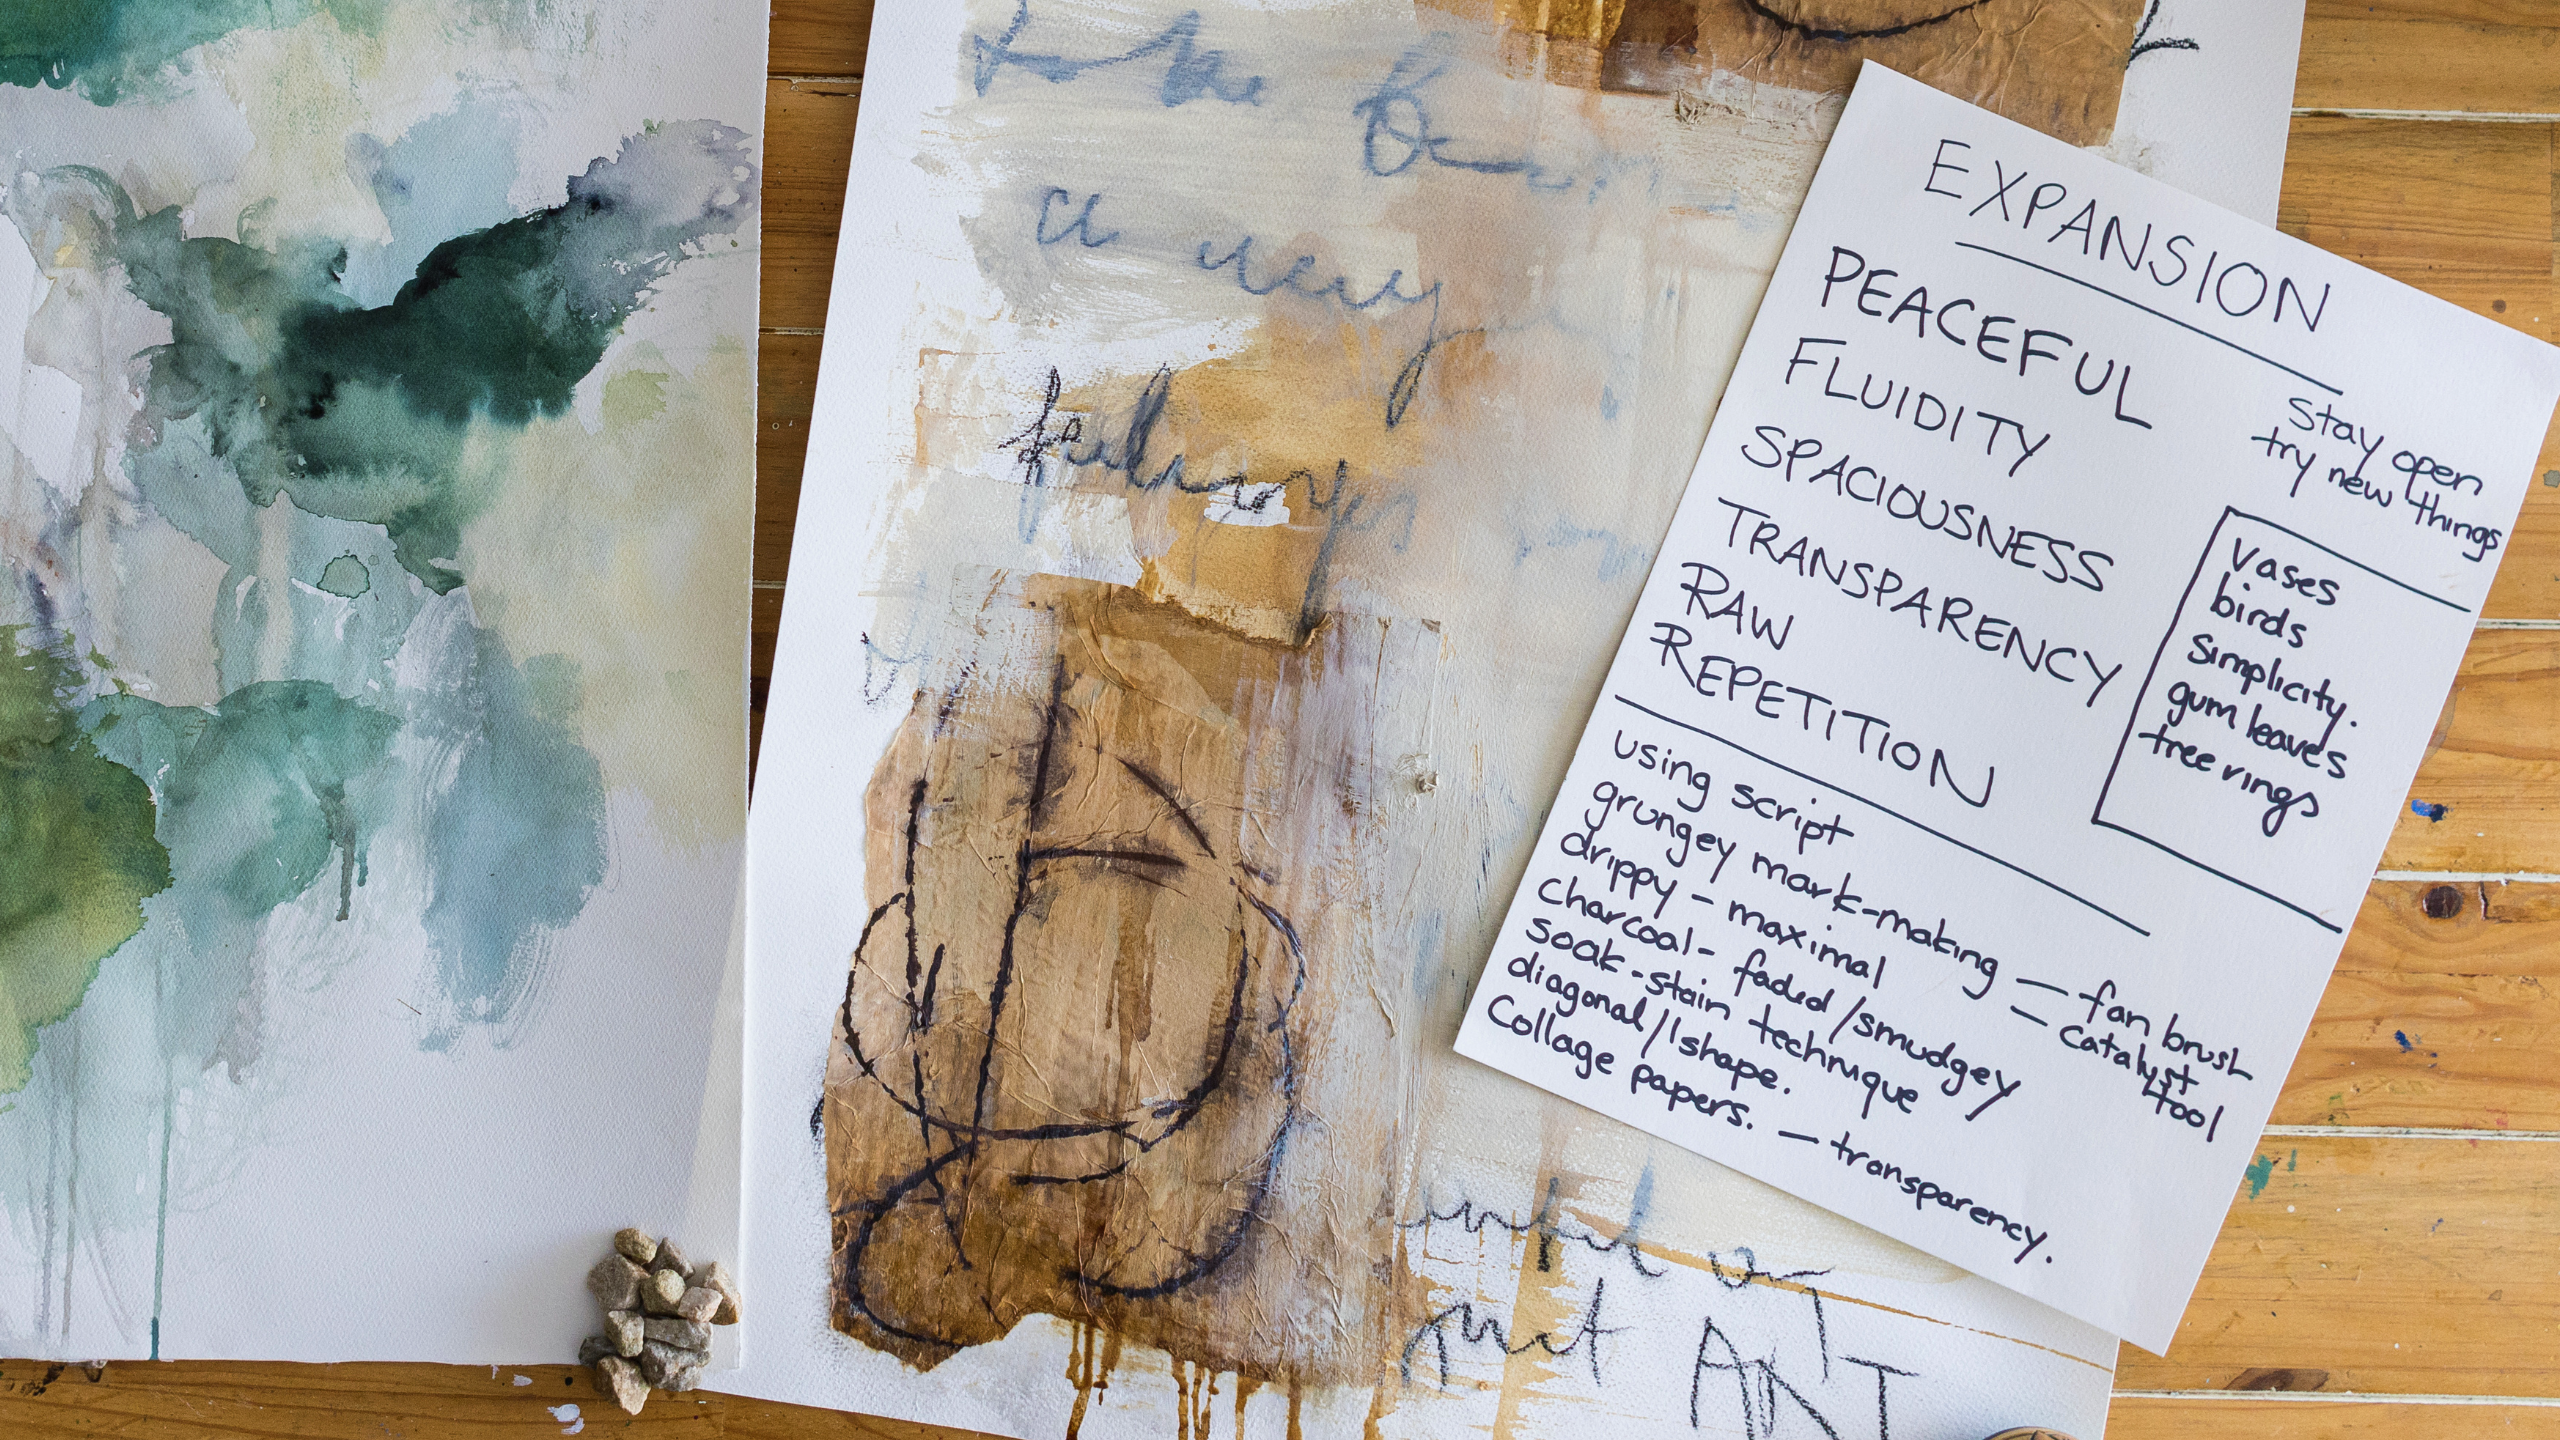 a very
feelings
ART
EXPANSION
PEACEFUL
FLUIDITY
SPACIOUSNESS
TRANSPARENCY
RAW
REPETITION
Stay open
try new things
Vases
birds
Simplicity.
gum leaves
tree rings
using script
grungey mark-making — fan brush
— Catalyst tool
drippy - maximal
Charcoal - faded/smudgey
Soak-stain technique
diagonal/l shape.
Collage papers. — transparency.